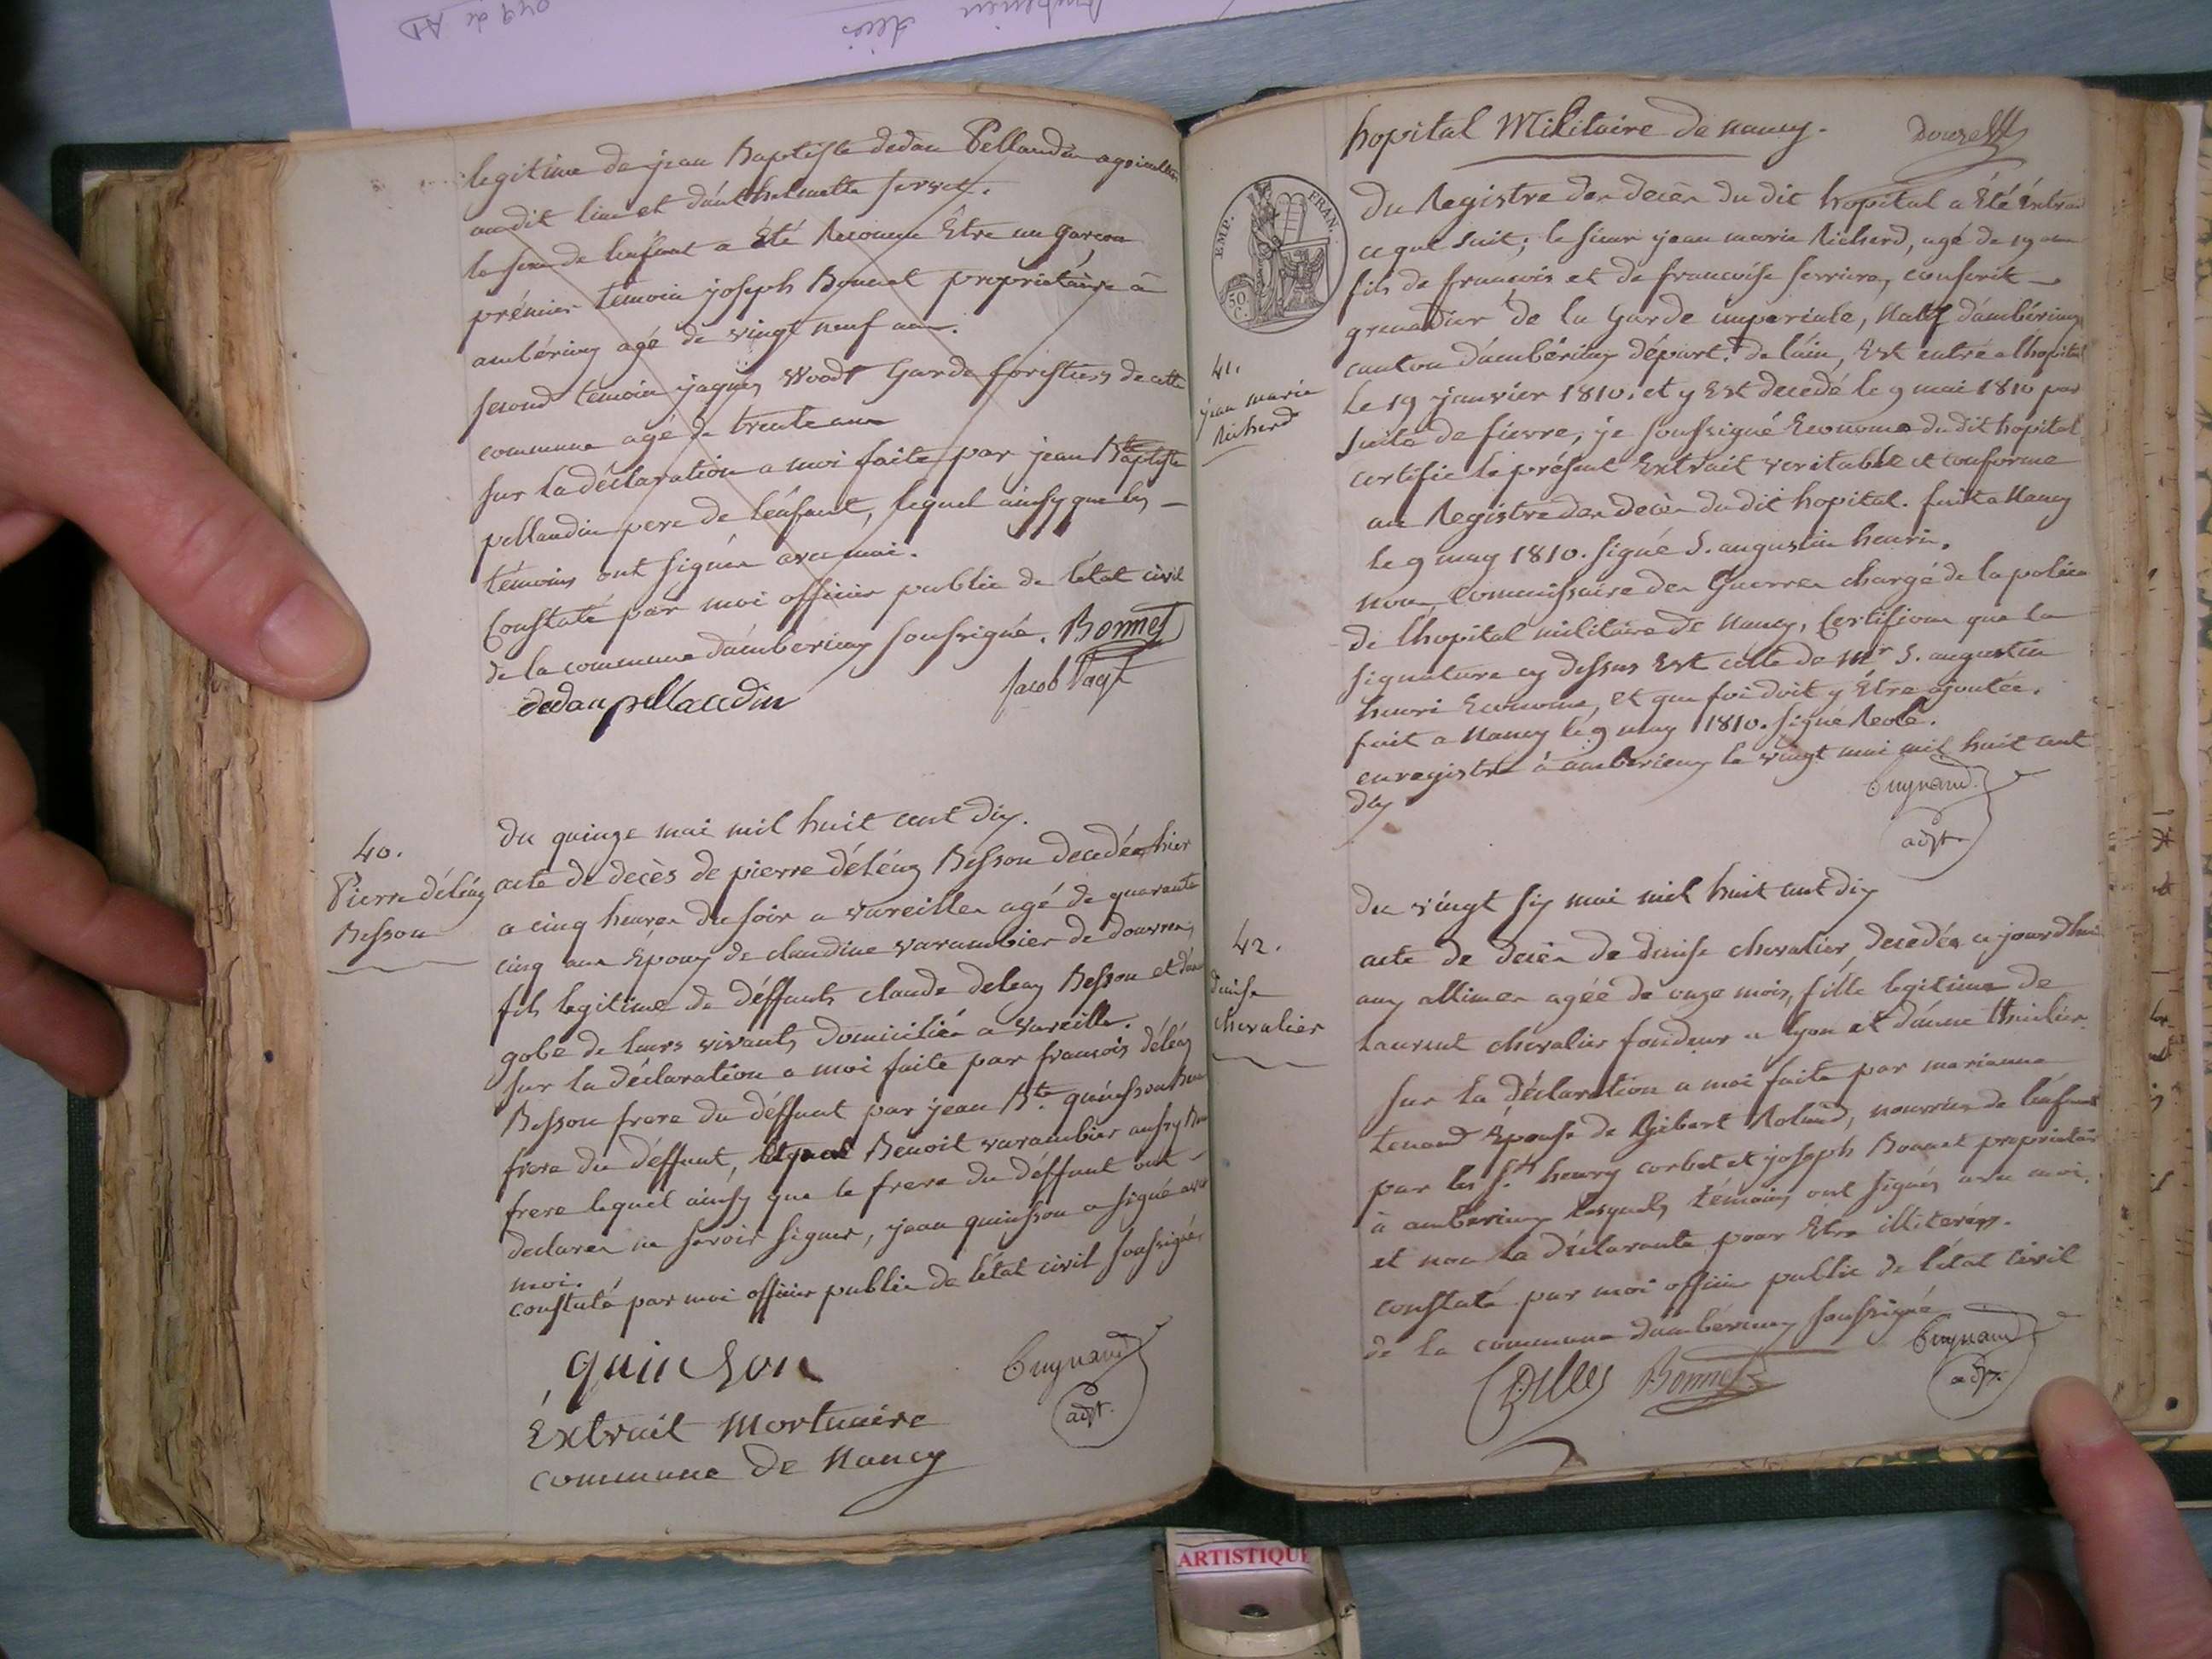 legitime de jean Baptiste dedan Pellaudin agriculteur
audit lieu et danthelmette servet.
le sexe de lenfant a été Reconnu Être un Garcon
prémier témoin joseph Bonnet propriétaire à
ambérieux agé de vingt neuf ans.
second temoin jaques Woodt Garde forestiers de cette
commune agé de trente ans
sur la déclaration a moi faite par jean Baptiste
pellaudin pere de lénfant, lequel ainsy que les
témoins ont signés avec moi.
Constaté par moi officier public de létat civil
de la commune dámbérieux soussigné. Bonnet
dedan pellaudin
Jacob
40.
Pierre déléaz
Besson
du quinze mai mil huit cent dix.
acte de decès de pierre déléaz Besson decedée hier
a cinq heures du soir a vareilles agé de quarante
cinq ans Époux de claudine varambier de douvres,
fils legitime de déffunts claude deleaz Besson et
gobe de leurs vivants domiciliés a vareilles.
sur la déclaration a moi faite par francois déléaz
Besson frere du déffunt par jean Bte. quinson Beau
frere du déffunt, Benoit varambier aussy Beau
frere lequel ainsy que le frere du déffunt ont
declares ne savoir signer, jean quinson a signé avec
moi.
constaté par moi officier public de létat civil soussigné,
quinson
Cuynand
adjt.
Extrait Mortuaire
commune De Nancy
hopital Militaire de Nancy.
EMP. FRAN.
50 C.
41.
jean marie
Richerd
Du Registre des decès du dit hopital a Été Extrait
ce qui suit; le sieur jean marie Richerd, agé de 19 ans
fils de francois et de francoise ferriere, conscrit
grenadier de la Garde imperiale, Natif dámbérieux
canton dámbérieux départ. de láin, Est entré a lhopital
le 19 janvier 1810. et y Est decedé le 9 mai 1810 par
suite de fievre, je soussigné Econome du dit hopital
certifie le présent Extrait veritable et conforme
au Registre des decès du dit hopital. fait a Nancy
le 9 may 1810. signé S. augustin henri.
nous Commissaire des Guerres chargé de la police
de lhopital militaire de Nancy, Certifions que la
signature cy dessus Est celle de Mr S. augustin
henri Econome, et que foi doit y Être ajoutée.
fait a Nancy le 9 may 1810. signé
enregistré à amberieux le vingt mai mil huit cent
dix
Cuynand
adjt.
42.
denise
chevalier
du vingt six mai mil huit cent dix
acte de decès de denise chevalier, decedée ce jourdhui
aux allimes agée de onze mois, fille legitime de
Laurent chevalier fondeur a lyon et dánne
sur la déclaration a moi faite par marianne
tenand Épouse de Roland, nourrice de lénfant
par les srs. henry corbet et joseph Bonnet proprietaires
à amberieux lesquels témoins ont signés avec moi,
et non la déclarante pour Être illiterée.
constaté par moi officier public de létat civil
de la commune dámbérieux soussigné
Bonnet
Cuynand
adjt.
ARTISTIQUE